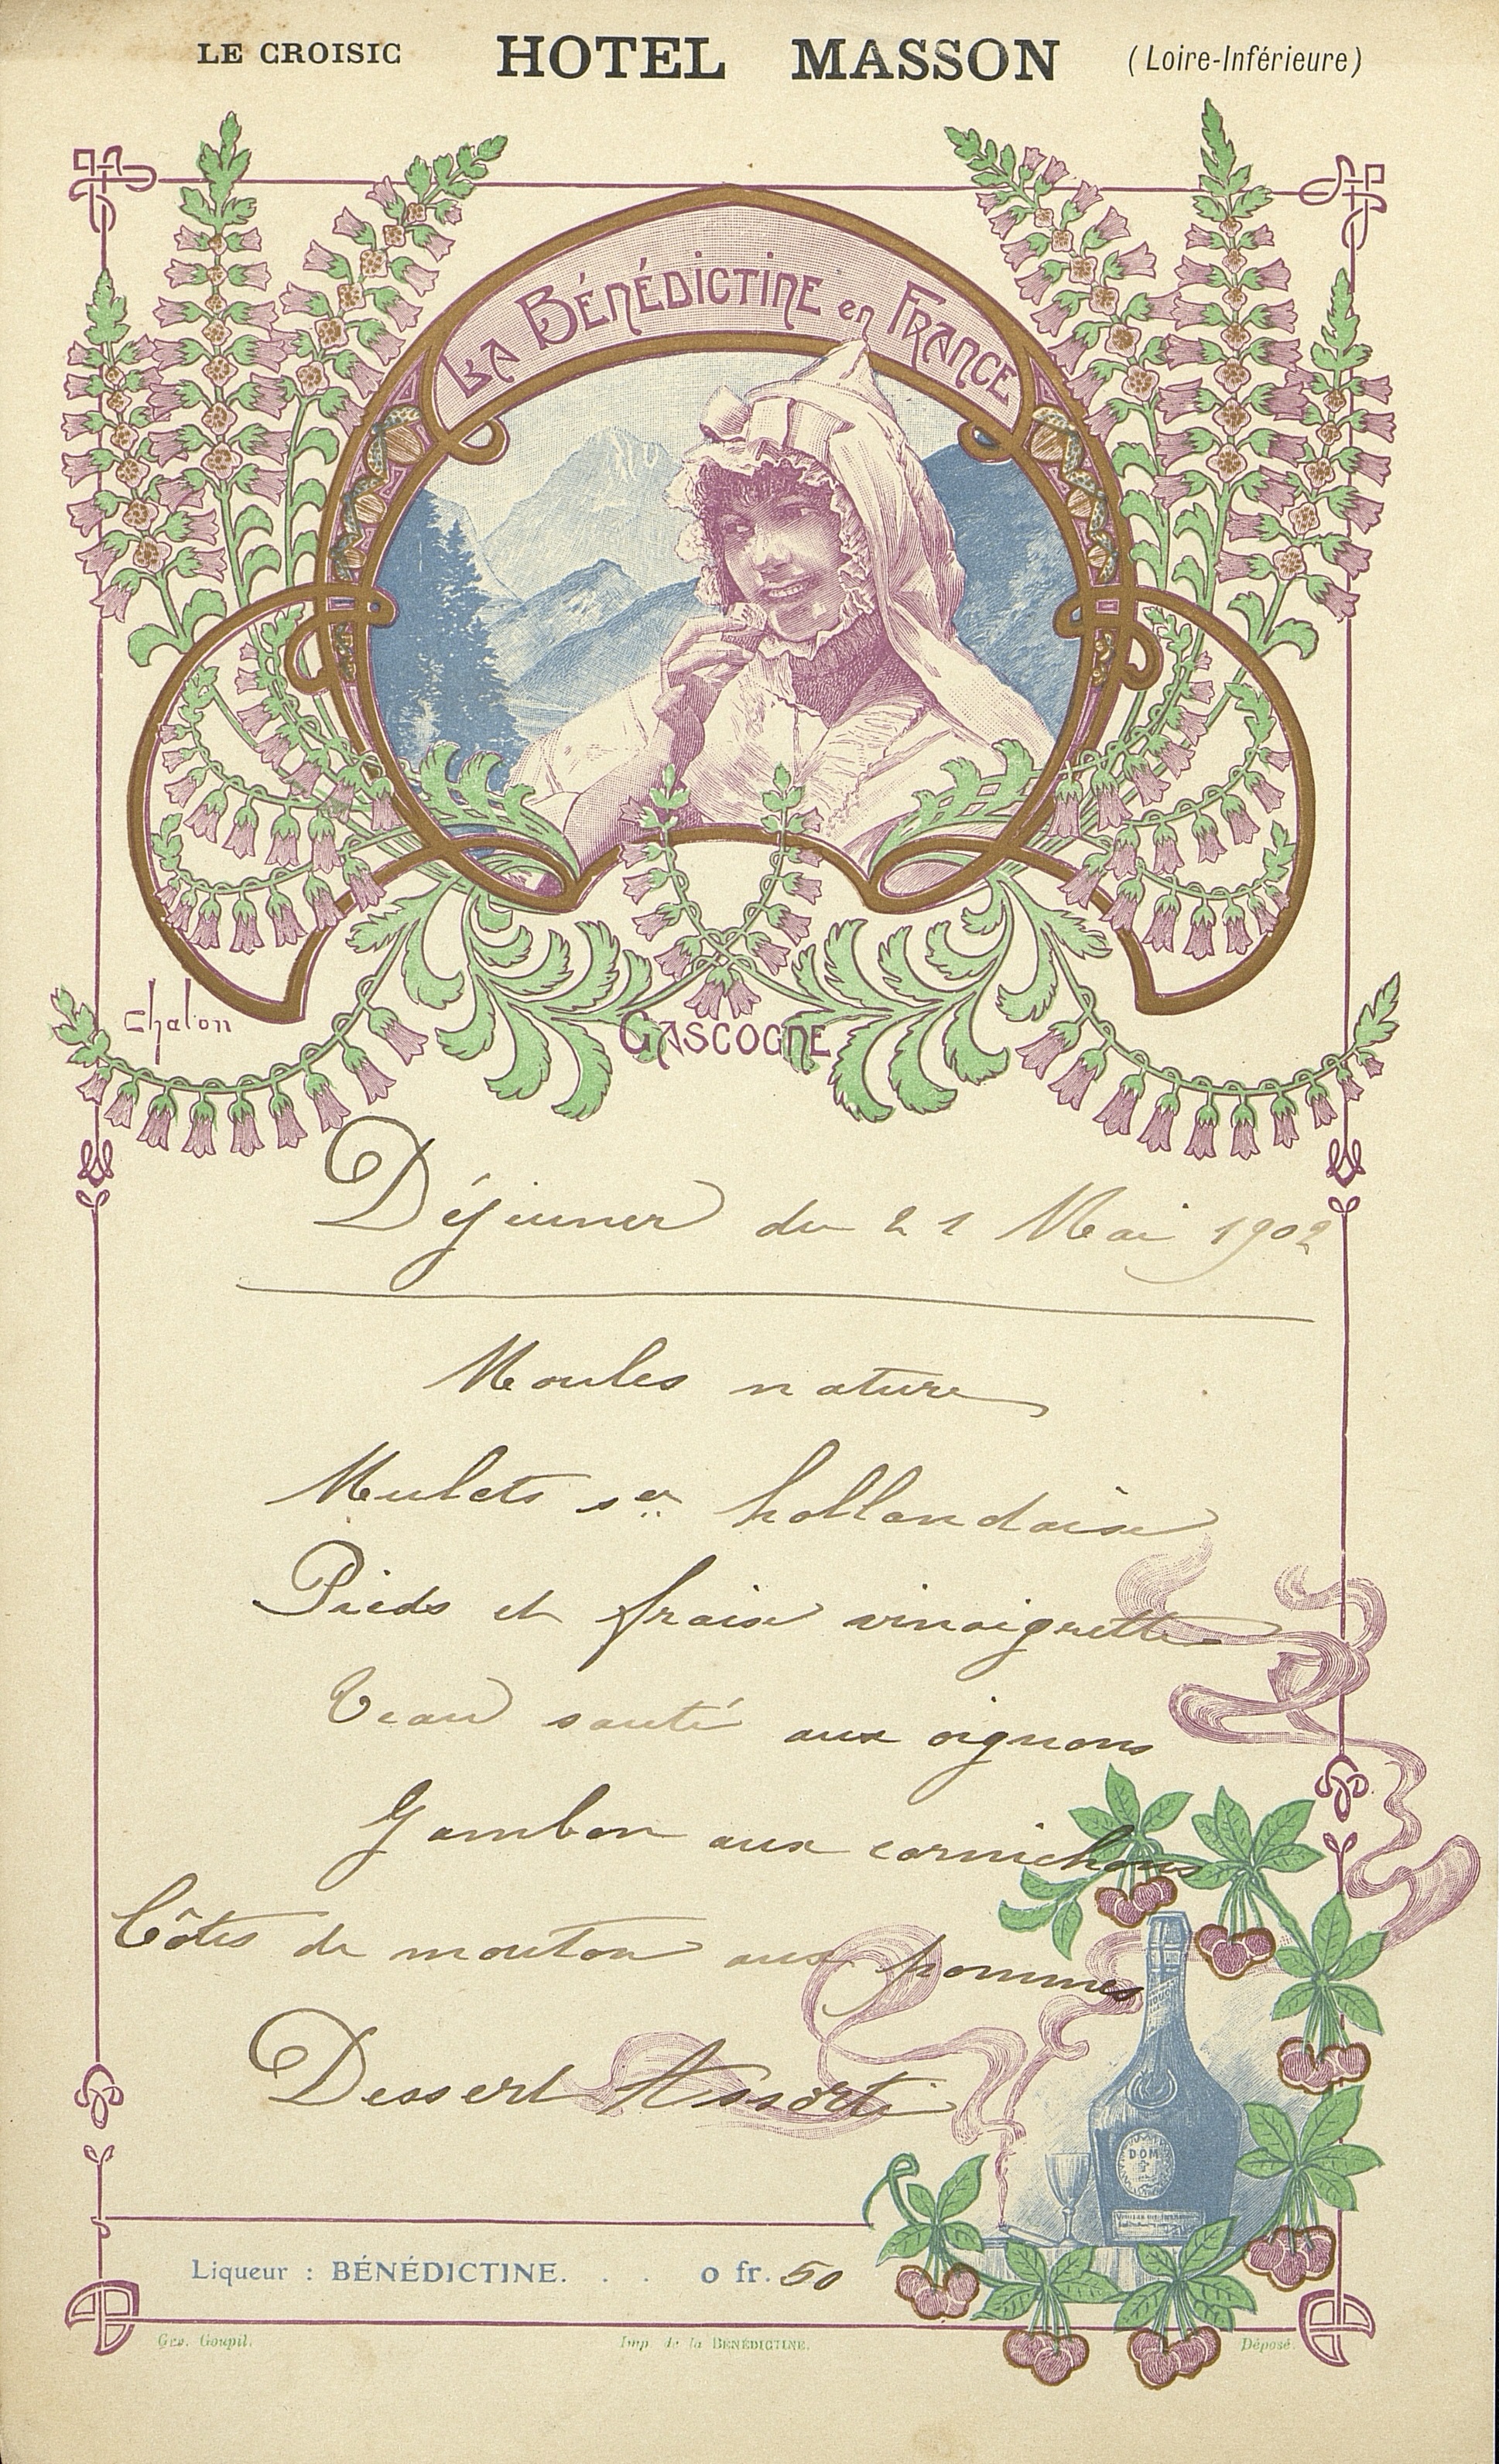 LE CROISIC HOTEL MASSON (Loire-Inférieure)
LA BÉNÉDICTINE en FRANCE
chalon
GASCOGNE
Déjeuner du 21 Mai 1902
Moules nature
Mulets sce hollandaise
Pieds et fraise vinaigrette
Veau sauté aux oignons
Jambon aux cornichons
Côtes de mouton aux pommes
Dessert Assorti
DOM
Liqueur : BÉNÉDICTINE. . . 0 fr. 50
Gev. Goupil. Imp. de la BÉNÉDICTINE. Déposé